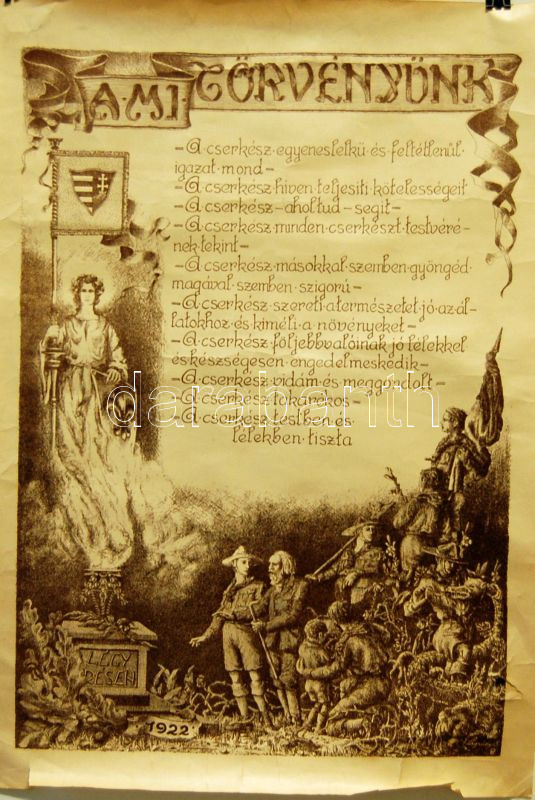 A·MI·TÖRVÉNYÜNK
– A cserkész egyeneslelkü és feltétlenül
igazat mond –
– A cserkész hiven teljesiti kötelességeit
– A cserkész – ahol tud – segit –
– A cserkész minden cserkészt testvéré-
nek tekint –
– A cserkész másokkal szemben gyöngéd
magával szemben szigorú –
– A cserkész szereti a természetet jó az ál-
latokhoz és kiméli a növényeket –
– A cserkész följebbvalóinak jó lélekkel
és készségesen engedelmeskedik –
– A cserkész vidám és meggondolt –
– A cserkész takarékos –
– A cserkész testben és
lélekben tiszta
darabanth
LÉGY
RÉSEN
1922